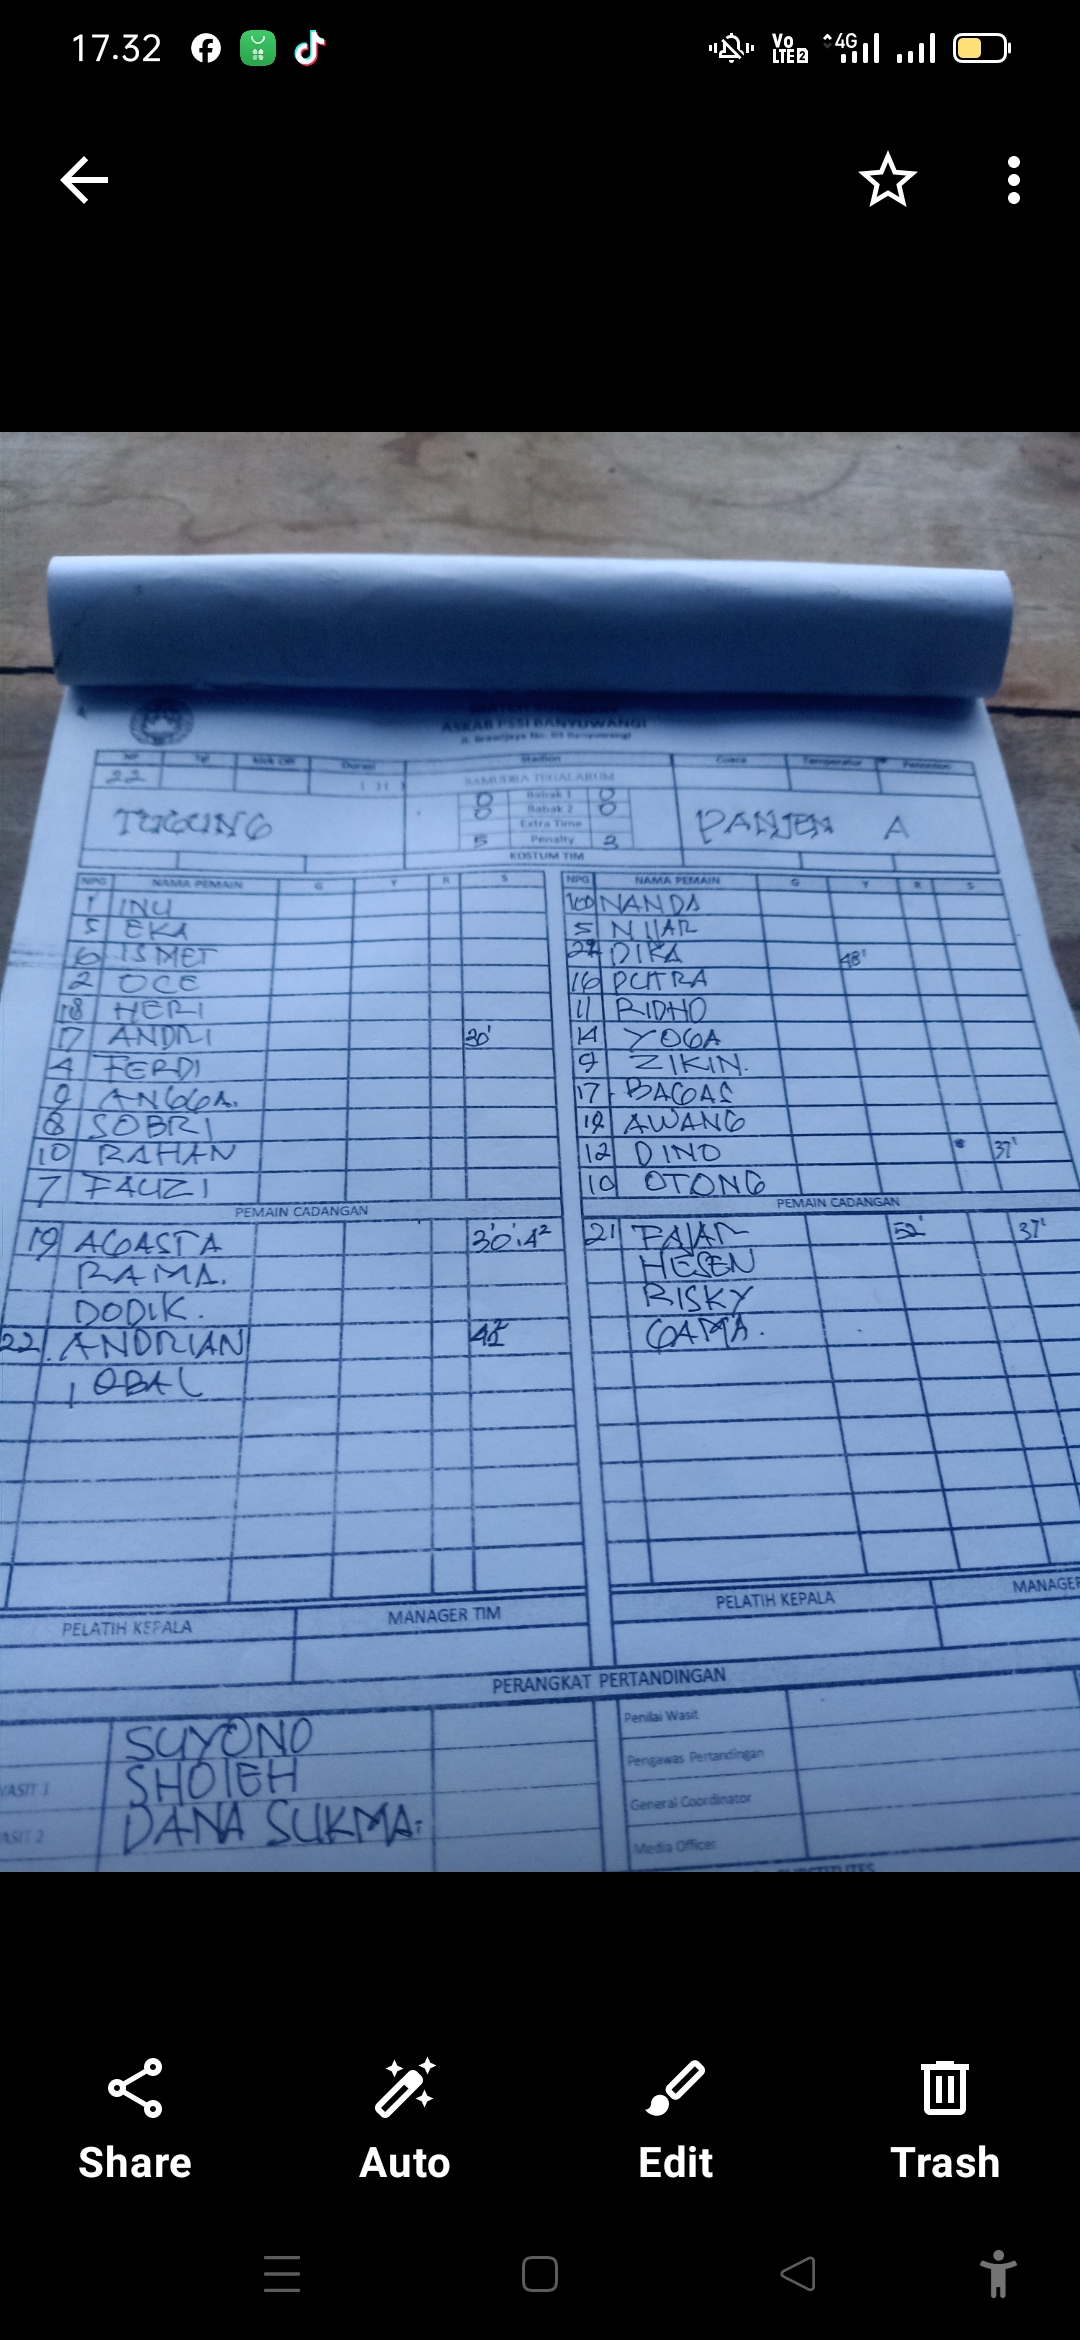 17.32
Vo LTE2 4G
ASKAB PSSI BANYUWANGI
Jl. Brawijaya No. Banyuwangi
Stadion
22 SAMUDRA TEGALARUM
0 Babak 1 0
TUGUNG 0 Babak 2 0 PANJEN A
Extra Time
5 Penalty 3
KOSTUM TIM
NPG NAMA PEMAIN G Y R S NPG NAMA PEMAIN G Y R S
1 INU NANDA
5 EKA 5 NIJAR
6 ISMET DIKA 48'
2 OCE 16 PUTRA
18 HERI 11 RIDHO
17 ANDRI 30' 14 YOGA
4 FERDI 9 ZIKIN.
9 ANGGA. 17 BAGAS
8 SOBRI AWANG
10 RAHAN 12 DINO 37'
7 FAUZI 10 OTONG
PEMAIN CADANGAN PEMAIN CADANGAN
19 AGASTA 30'.42 21 FAJAR 52' 37'
RAMA. HESEN
DODIK. RISKY
22. ANDRIAN 42 GAMA.
IQBAL
PELATIH KEPALA MANAGER TIM PELATIH KEPALA MANAGER
PERANGKAT PERTANDINGAN
SUYONO Penilai Wasit
WASIT 1 SHOLEH Pengawas Pertandingan
ASIT 2 DANA SUKMA. General Coordinator
Media Officer
SUBSTITUTES
Share Auto Edit Trash